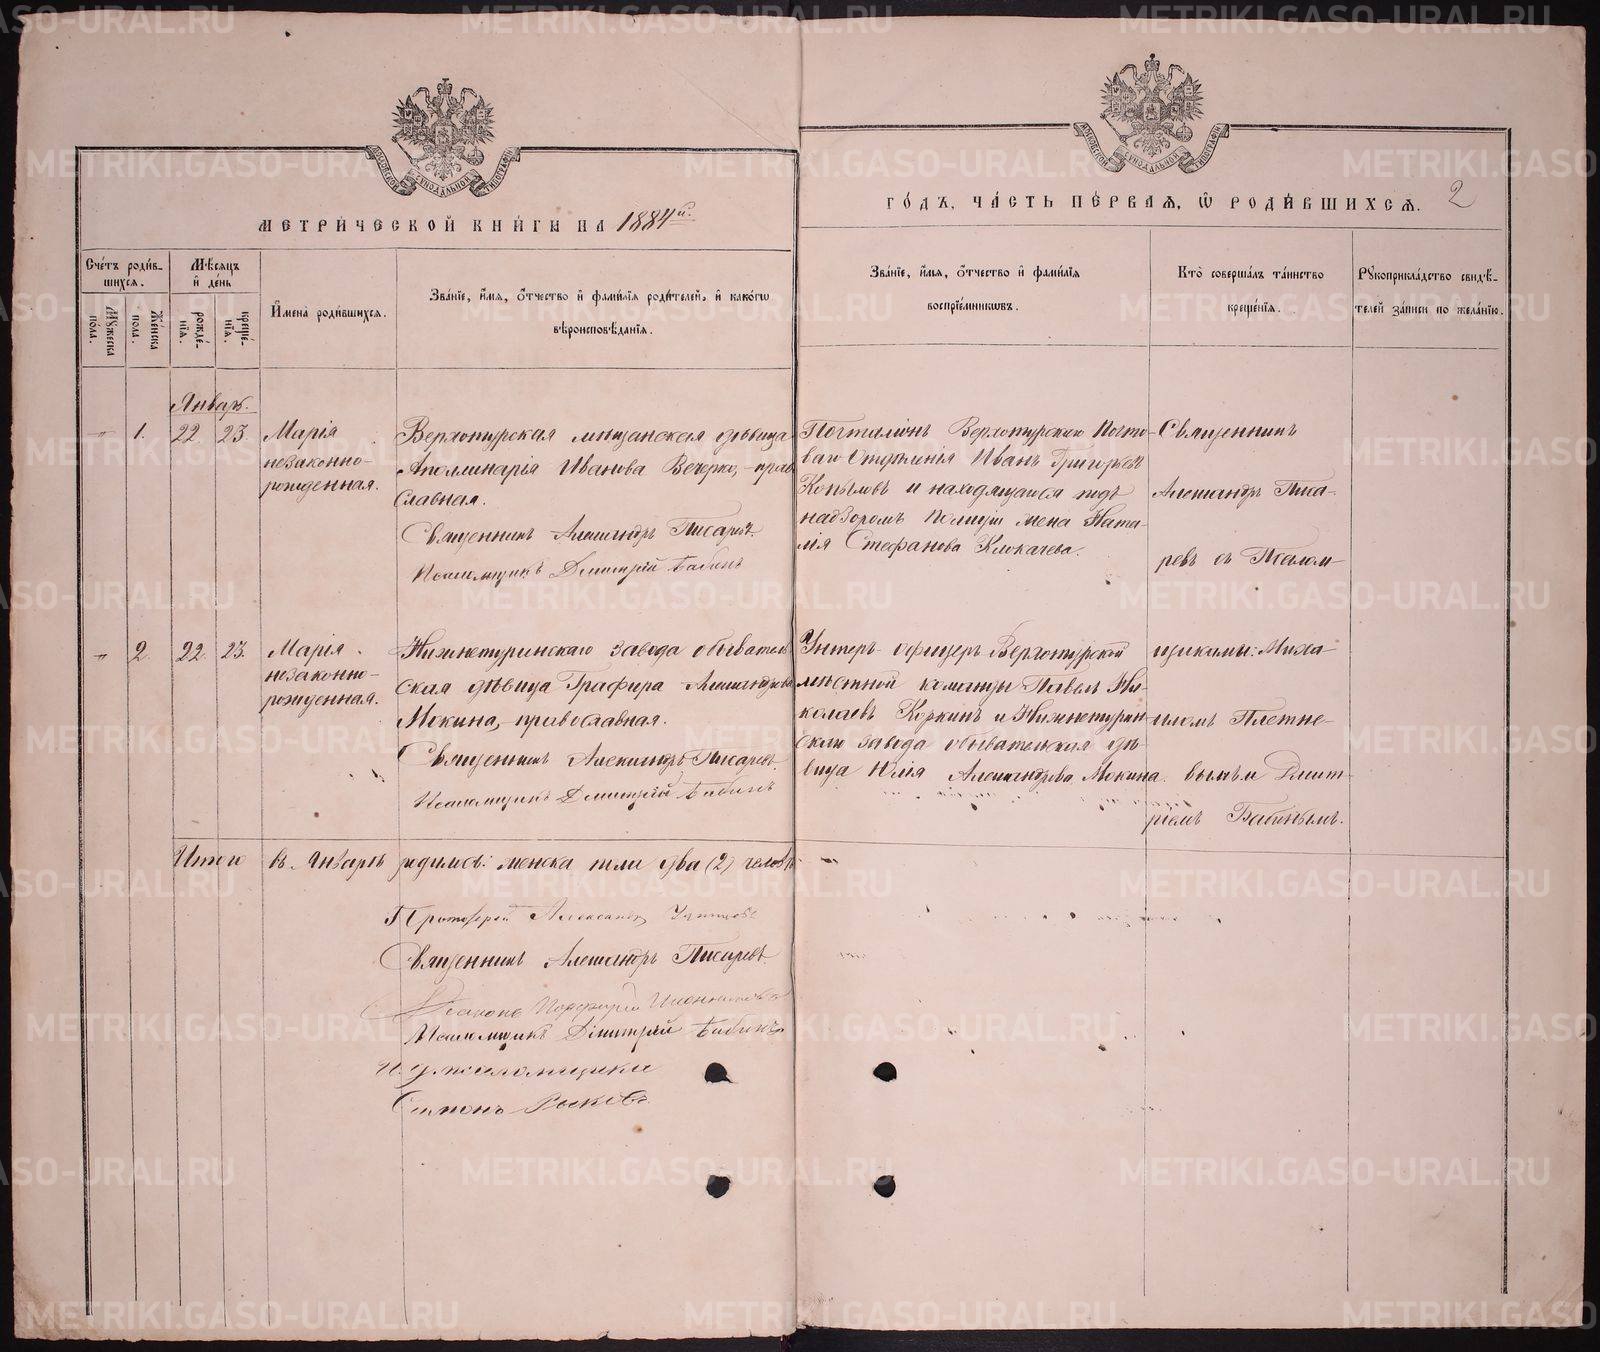 МЕТРИКИ.GASO-URAL.RU
МОСКОВСКОЙ СѴНОДАЛЬНОЙ ТИПОГРАФІИ
МОСКОВСКОЙ СѴНОДАЛЬНОЙ ТИПОГРАФІИ
МЕТРИ́ЧЕСКОЙ КНИ́ГИ НА 1884й.
ГО́ДЪ, ЧА́СТЬ ПЕ́РВАЯ, Ѽ РОДИ́ВШИХСЯ. 2
Сче́тъ роди́в-
шихся.
Мꙋжеска
по́ла.
Же́нска
по́ла.
Мѣ́сяцъ
и́ де́нь
рожде́-
нїя.
креще́-
нїя.
И҆мена̀ роди́вшихся.
Зва́нїе, и҆́мя, ѻ҆́тчество и҆ фами́лїя роди́телей, и҆ како́гѡ
вѣроисповѣ́данїя.
Зва́нїе, и҆́мя, ѻ҆́тчество и҆ фами́лїя
воспрїе́мниковъ.
Кто̀ соверша́лъ та́инство
креще́нїя.
Рꙋкоприкла́дство свидѣ́-
телей за́писи по жела́нїю.
Январь.
" 1. 22. 23. Марія
незаконно-
рожденная.
Верхотурская мѣщанская дѣвица
Аполлинарія Иванова Вечерко, право
славная.
Священникъ Александръ Писаревъ.
Псаломщикъ Дмитрій Бабинъ
Почталіонъ Верхотурскаго Почто-
ваго Отдѣленія Иванъ Григорьевъ
Копыловъ и находящаяся подъ
надзоромъ полиціи жена Ната-
лія Стефанова Клюкачева.
Священникъ
Александръ Писа-
ревъ съ Псалом-
" 2. 22. 23. Марія
незаконно-
рожденная.
Нижнетуринскаго завода обыватель
ская дѣвица Графира Александрова
Мокина, православная.
Священникъ Александръ Писаревъ.
Псаломщикъ Дмитрій Бабинъ
Унтеръ-офицеръ Верхотурской
мѣстной команды Павелъ Ни-
колаевъ Коркинъ и Нижнетурин-
скаго завода обывательская дѣ-
вица Юлія Александрова Мокина.
щиками: Миха-
иломъ Плетне-
вымъ и Димит-
ріемъ Бабинымъ.
Итого въ Январѣ родилось: женска пола два (2) человѣ
Протоіерей Александръ
Священникъ Александръ Писаревъ.
Діаконъ Порфирій
Псаломщикъ Дмитрій Бабинъ
И. д. псаломщика
Симонъ Рыковъ.
METRIKI.GASO-URAL.RU